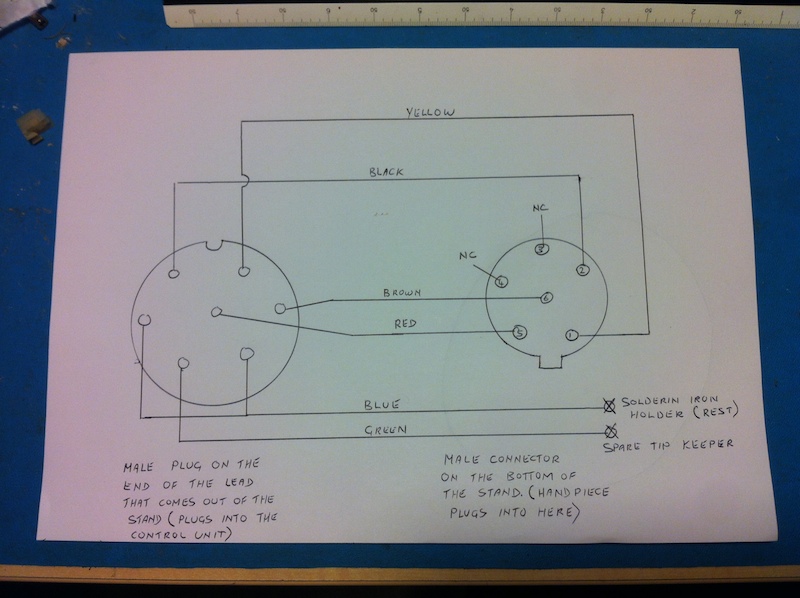 YELLOW
BLACK
NC
NC
3
2
4
6
5
1
BROWN
RED
BLUE
GREEN
SOLDERIN IRON
HOLDER (REST)
SPARE TIP KEEPER
MALE PLUG ON THE
END OF THE LEAD
THAT COMES OUT OF THE
STAND (PLUGS INTO THE
CONTROL UNIT)
MALE CONNECTOR
ON THE BOTTOM OF
THE STAND. (HANDPIECE
PLUGS INTO HERE)